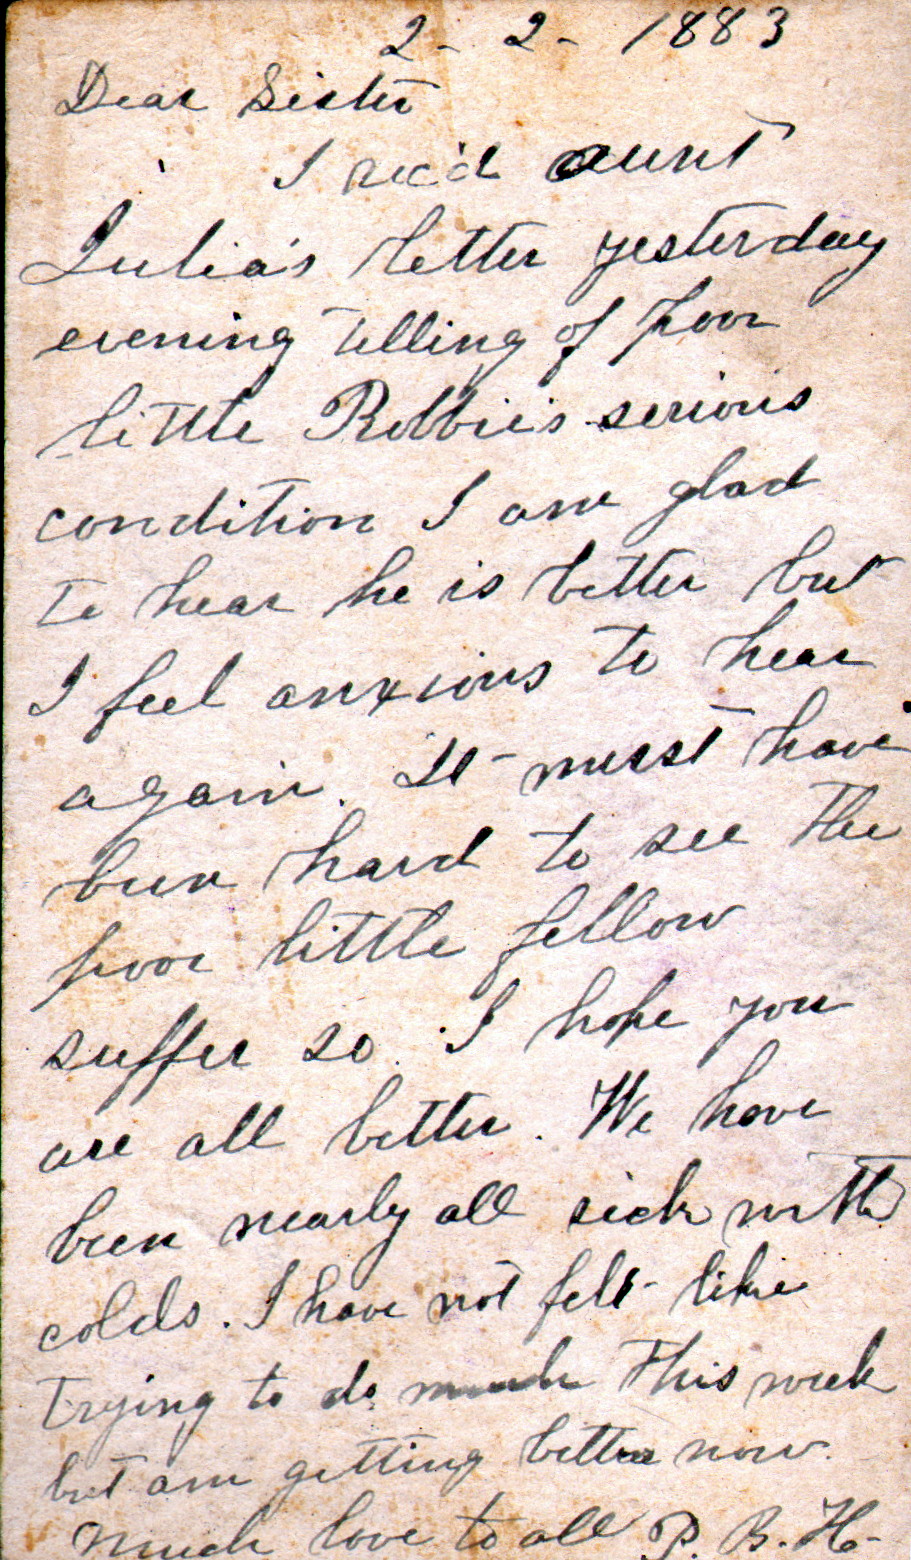 2 - 2 - 1883
Dear Sister
I rec'd aunt
Julia's letter yesterday
evening telling of poor
little Robbie's serious
condition I am glad
to hear he is better but
I feel anxious to hear
again. It must have
been hard to see the
poor little fellow
suffer so. I hope you
are all better. We have
been nearly all sick with
colds. I have not felt like
trying to do much this week
but am getting better now.
Much love to all P. B. H-